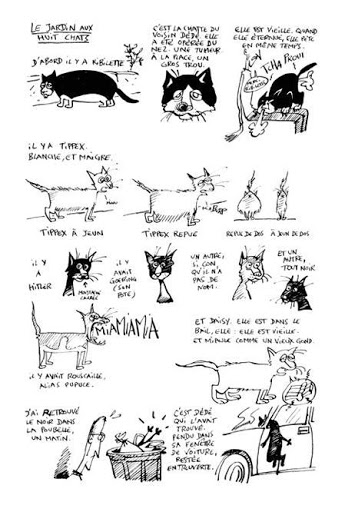 LE JARDIN AUX
HUIT CHATS
D'ABORD IL Y A KIBILETTE
C'EST LA CHATTE DU
VOISIN DÉDÉ, ELLE
A ÉTÉ OPÉRÉE DU
NEZ. UNE TUMEUR
À LA PLACE, UN
GROS TROU.
ELLE EST VIEILLE. QUAND
ELLE ÉTERNUE, ELLE PÈTE
EN MÊME TEMPS.
IL Y A TIPPEX.
BLANCHE, ET MAIGRE.
TIPPEX À JEUN
TIPPEX REPUE
REPUE DE DOS
À JEUN DE DOS
IL
Y
A
HITLER
MOUSTACHE
CARRÉE
IL Y
AVAIT
GOERING
(SON
POTE)
UN AUTRE,
SI CON
QU'IL N'A
PAS DE
NOM.
ET UN
AUTRE,
TOUT NOIR
MIAMIAMIA
IL Y AVAIT ROUSCAILLE,
ALIAS PUPUCE.
ET DAISY. ELLE EST DANS LE
BAIL, ELLE : ELLE EST VIEILLE
ET MIAULE COMME UN VIEUX GOND.
J'AI RETROUVÉ
LE NOIR DANS
LA POUBELLE,
UN MATIN.
C'EST DÉDÉ
QUI L'AVAIT
TROUVÉ.
PENDU DANS
SA FENÊTRE
DE VOITURE,
RESTÉE
ENTROUVERTE.